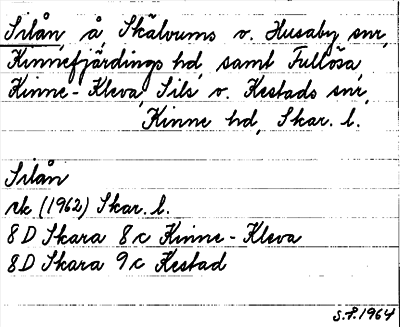 Silån, å Skälvums o. Husaby snr,
Kinnefjärdings hd, samt Fullösa,
Kinne-Kleva, Sils o. Kestads snr,
Kinne hd, Skar. l.
Silån
rk (1962) Skar. l.
8D Skara 8c Kinne-Kleva
8D Skara 9c Kestad
S.F. 1964